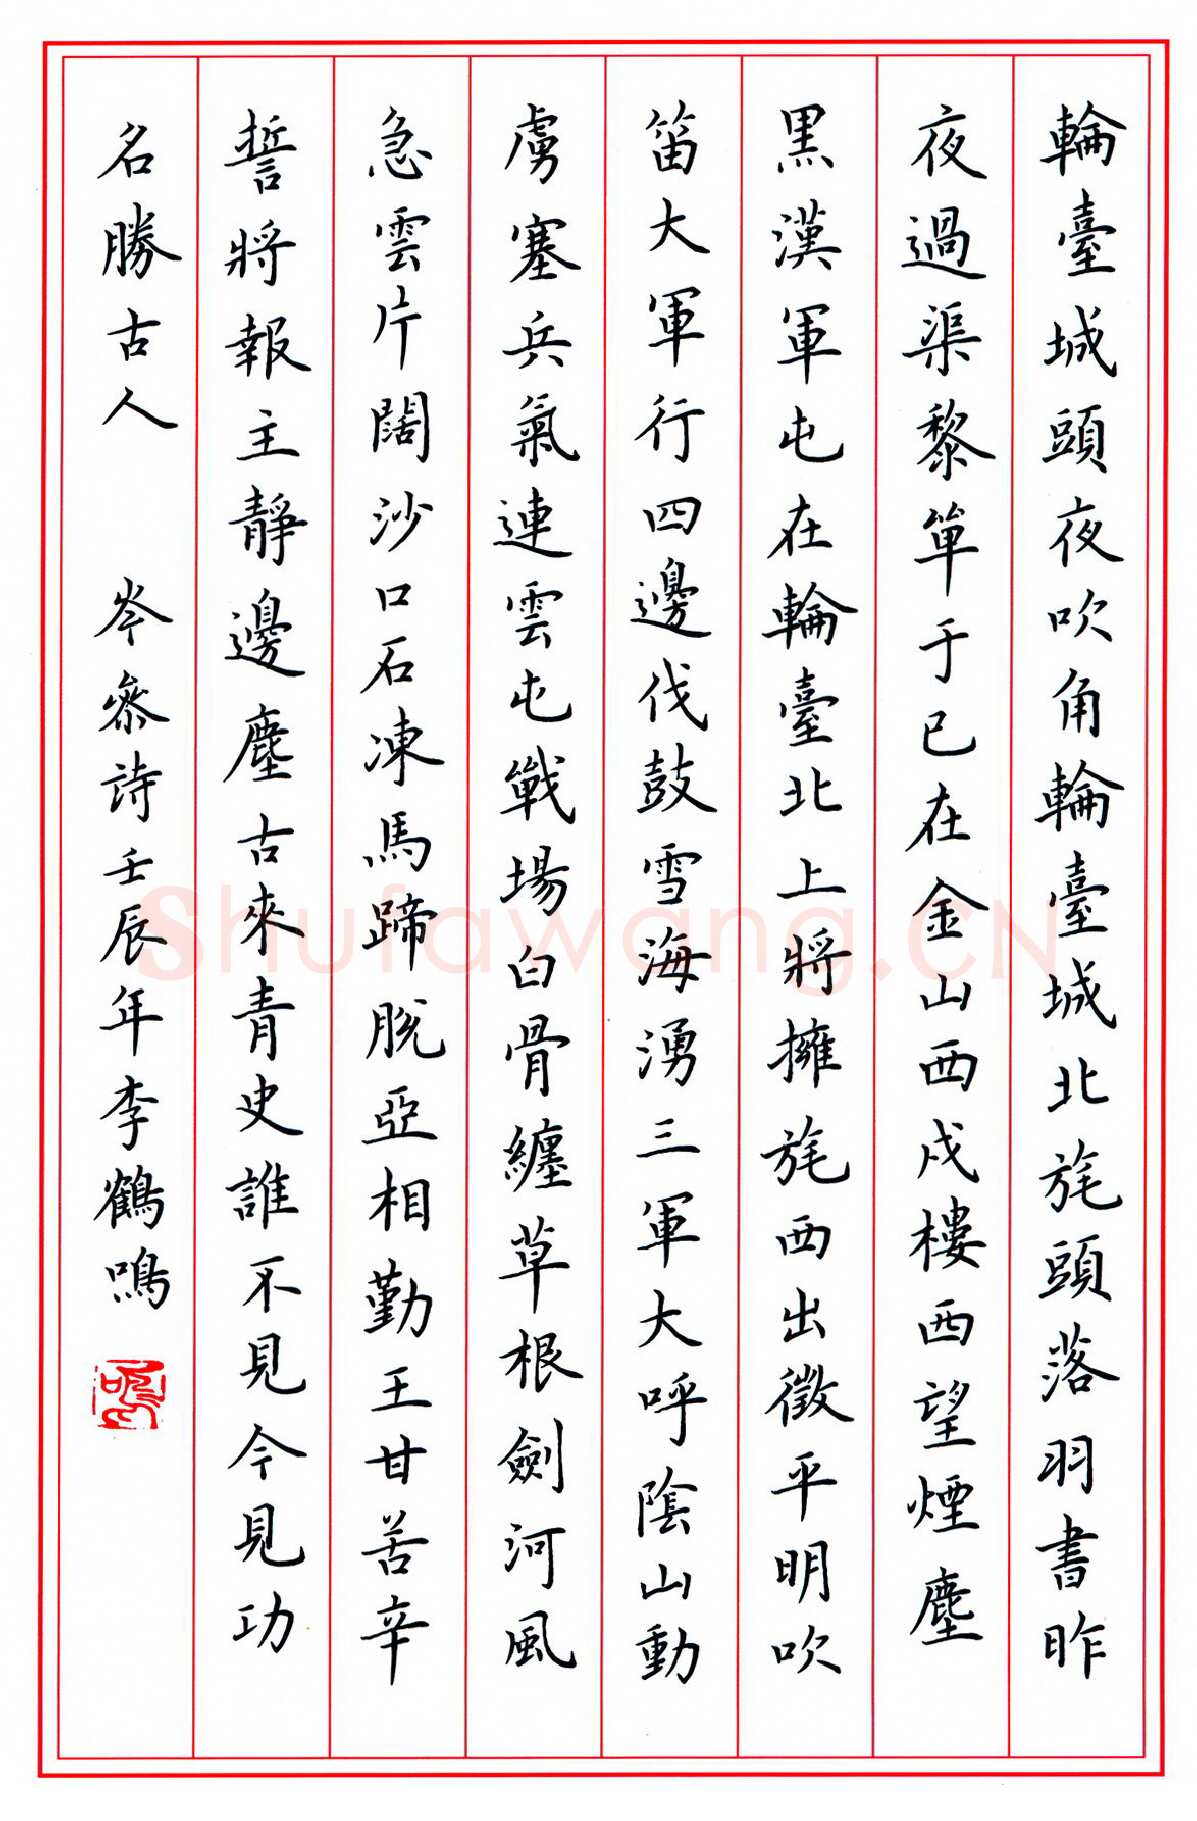 輪臺城頭夜吹角輪臺城北旄頭落羽書昨
夜過渠黎單于已在金山西戍樓西望煙塵
黑漢軍屯在輪臺北上將擁旄西出徵平明吹
笛大軍行四邊伐鼓雪海湧三軍大呼陰山動
虜塞兵氣連雲屯戰場白骨纏草根劍河風
急雲片闊沙口石凍馬蹄脫亞相勤王甘苦辛
誓將報主靜邊塵古來青史誰不見今見功
名勝古人 岑參詩壬辰年李鶴鳴
鳴
Shufawang.CN